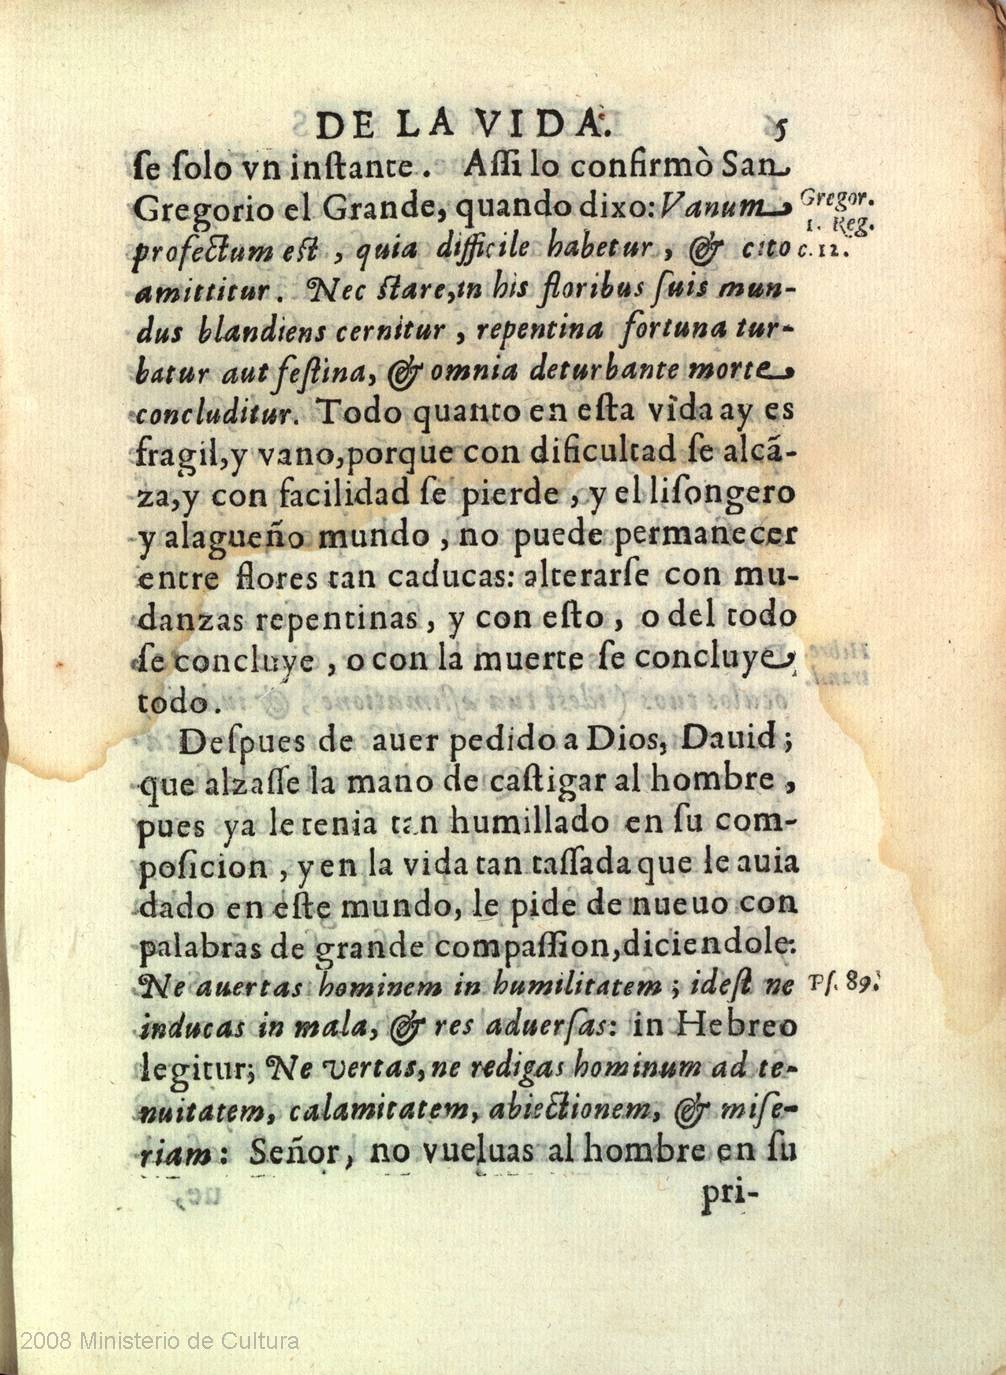 DE LA VIDA. 5
ſe ſolo vn inſtante. Aſſi lo confirmò San
Gregorio el Grande, quando dixo: Vanum
Gregor.
1. Reg.
c. 12.
profectum eſt, quia difficile habetur, & cito
amittitur. Nec ſtare, in his floribus ſuis mun-
dus blandiens cernitur, repentina fortuna tur-
batur aut feſtina, & omnia deturbante morte
concluditur. Todo quanto en eſta vida ay es
fragil, y vano, porque con dificultad ſe alcã-
za, y con facilidad ſe pierde, y el liſongero
y alagueño mundo, no puede permanecer
entre flores tan caducas: alterarſe con mu-
danzas repentinas, y con eſto, o del todo
ſe concluye, o con la muerte ſe concluye
todo.
Deſpues de auer pedido a Dios, Dauid;
que alzaſſe la mano de caſtigar al hombre,
pues ya le tenia tan humillado en ſu com-
poſicion, y en la vida tan taſſada que le auia
dado en eſte mundo, le pide de nueuo con
palabras de grande compaſſion, diciendole:
Ne auertas hominem in humilitatem; ideſt ne
Pſ. 89.
inducas in mala, & res aduerſas: in Hebreo
legitur; Ne vertas, ne redigas hominum ad te-
nuitatem, calamitatem, abiectionem, & miſe-
riam: Señor, no vueluas al hombre en ſu
pri-
2008 Ministerio de Cultura